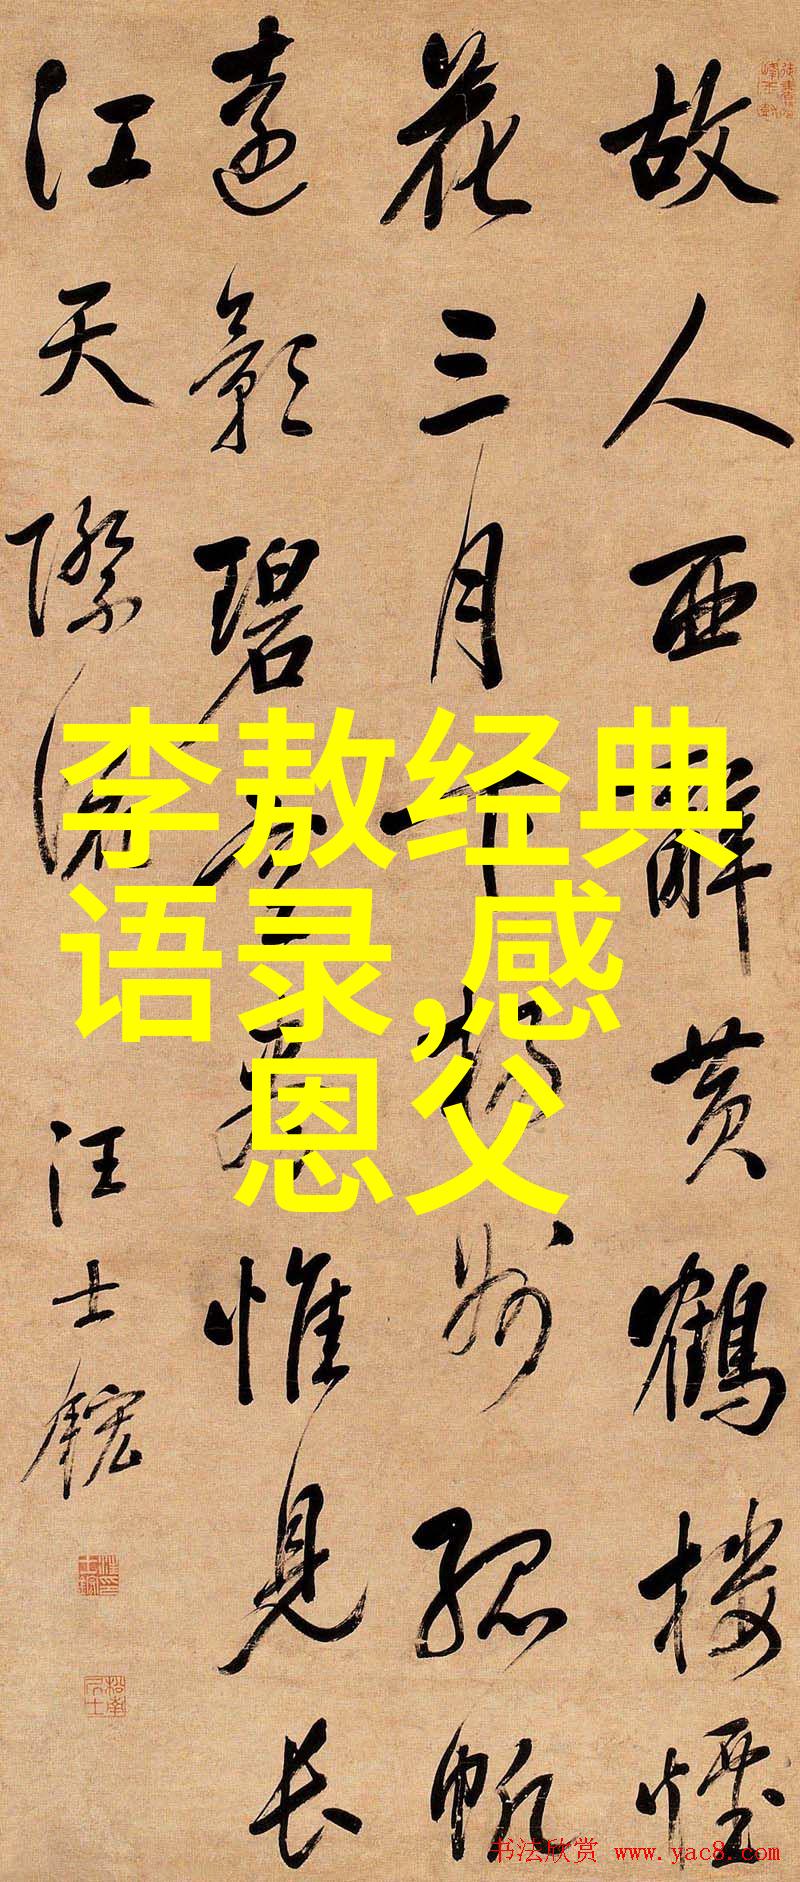 故人西辭黃鶴樓煙
花三月下揚州孤帆
遠影碧空盡惟見長
江天際流
汪士鋐
李敖经典
语录,感
恩父
书法欣赏 www.yac8.com